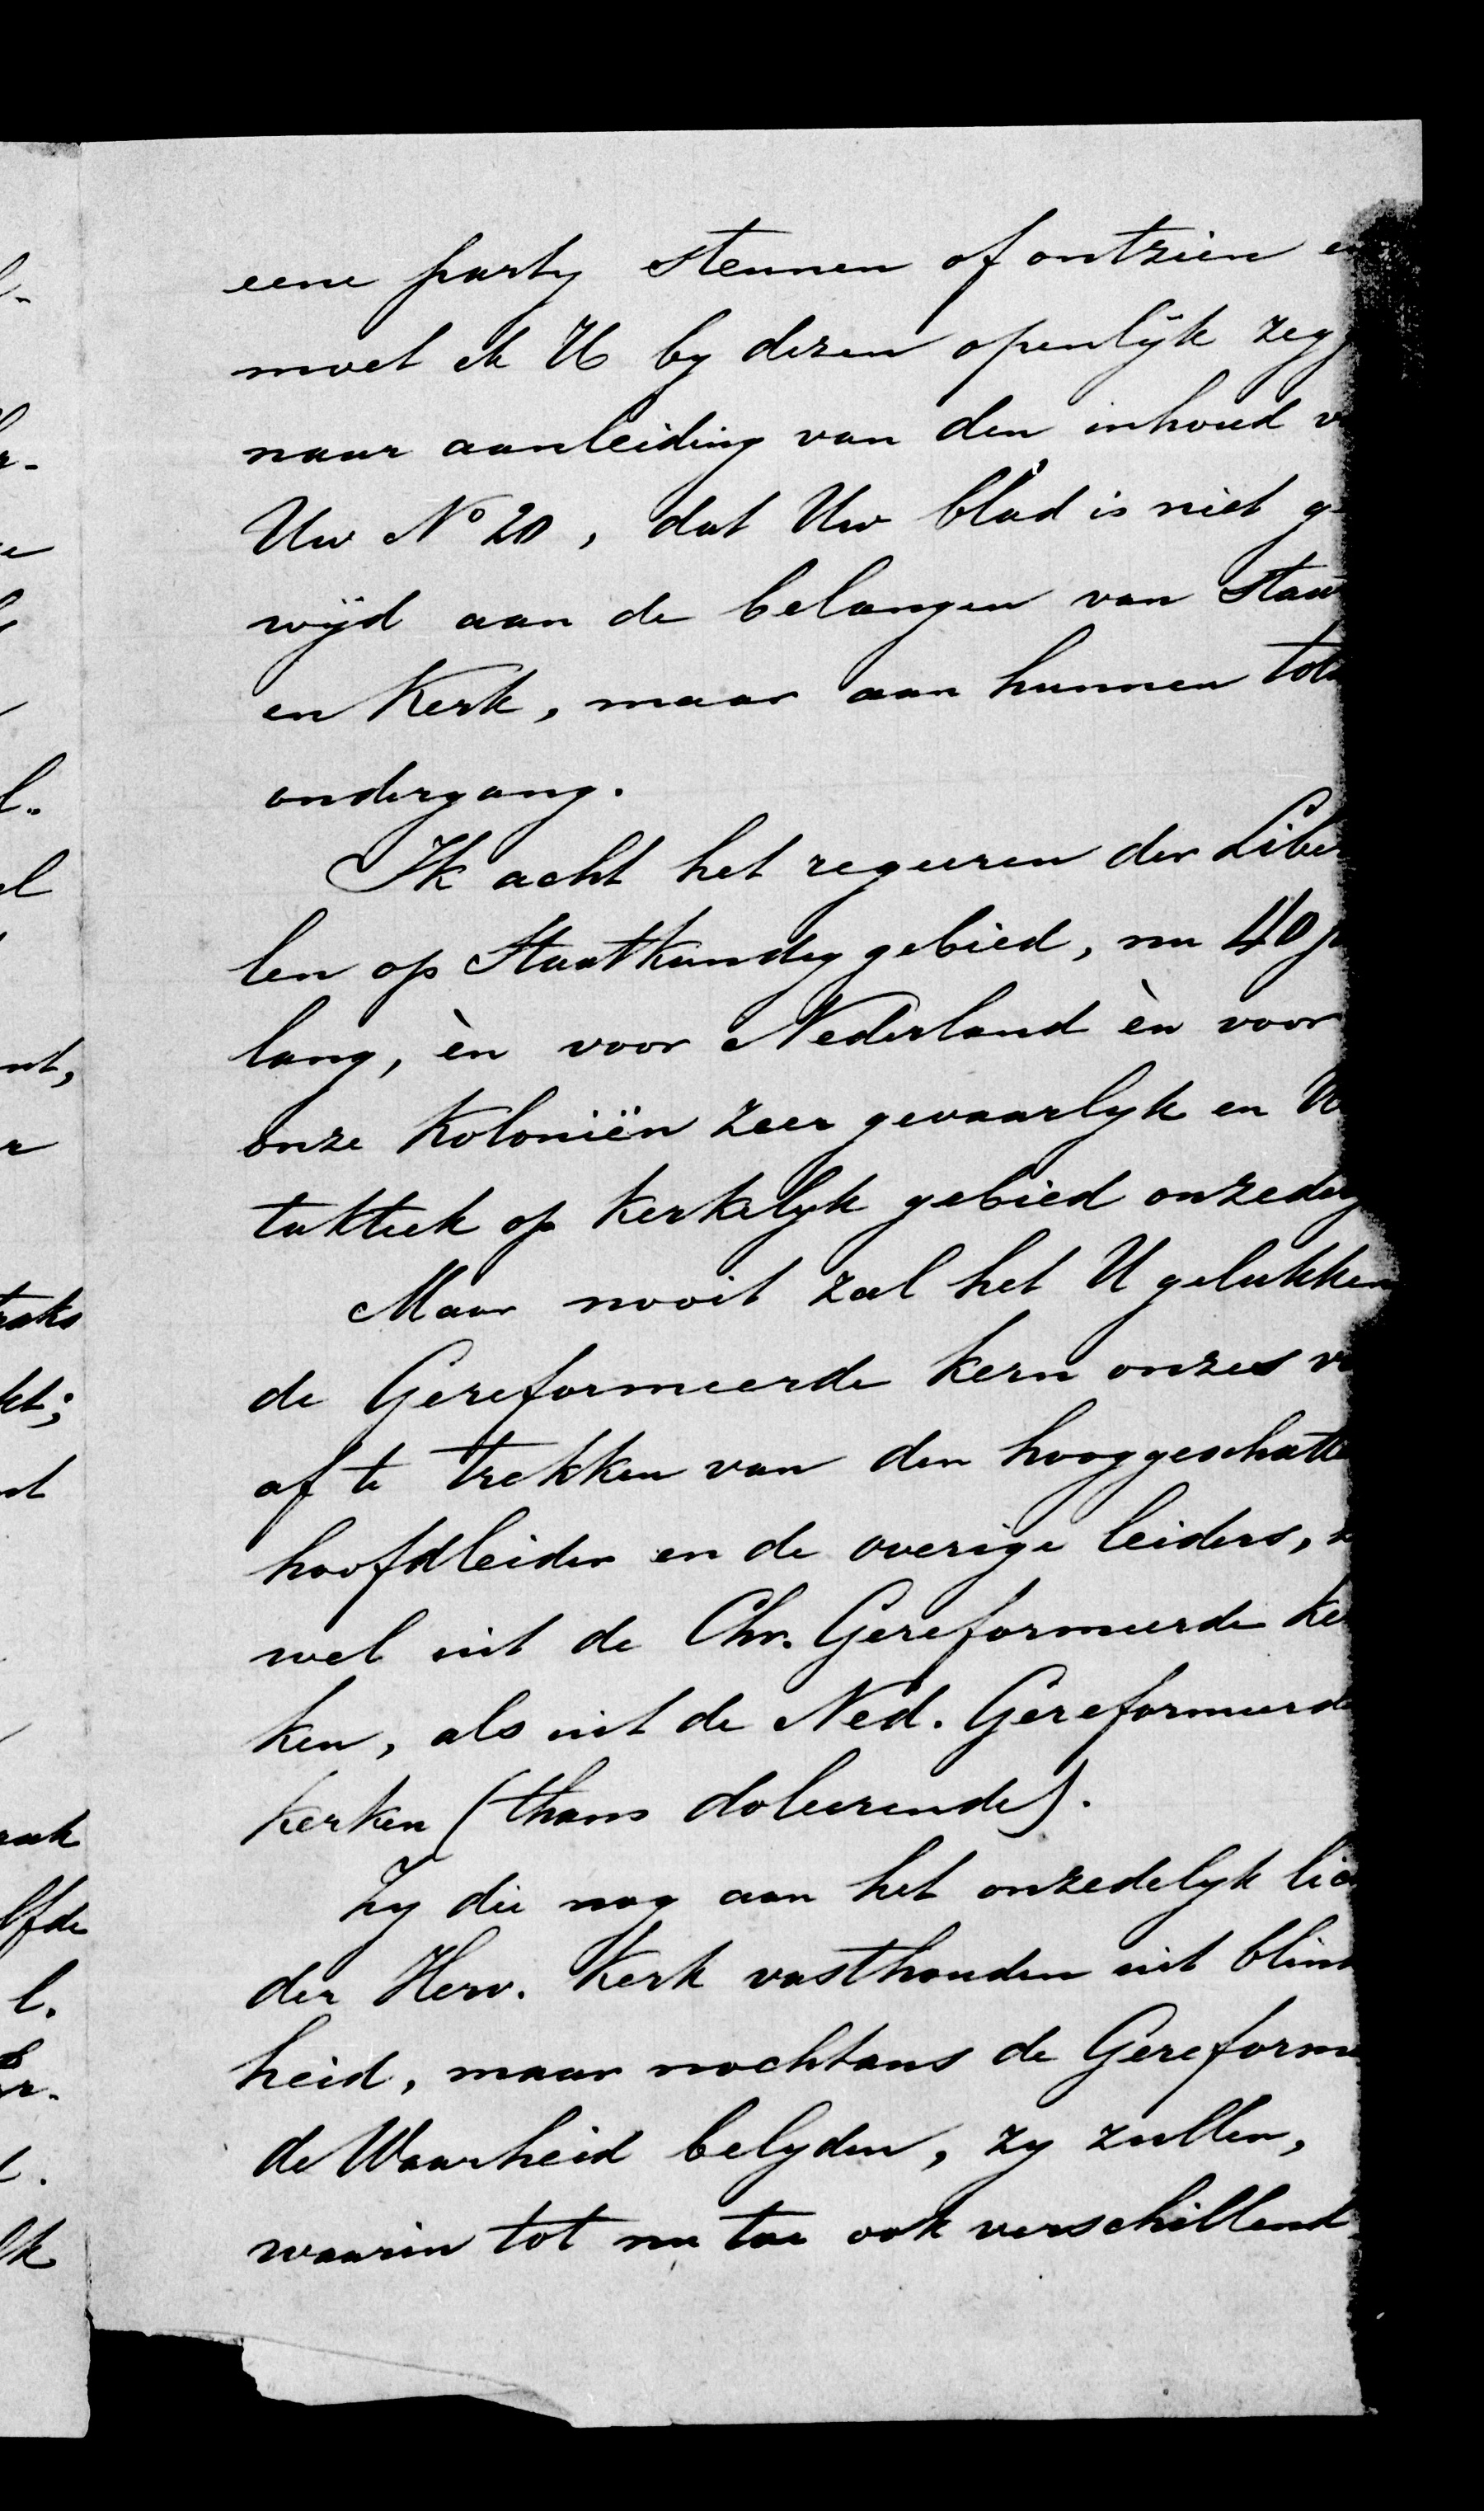 eene party steunen of ontzien e
moet ik U by dezen openlijk zegg
naar aanleiding van den inhoud v
Uw No 20, dat Uw blad is niet ge
wijd aan de belangen van Staa
en Kerk, maar aan hunnen tota
ondergang.
Ik acht het regeeren der Liber
len op Staatkundig gebied, nu 40 j
lang, èn voor Nederland èn voor
onze Koloniën zeer gevaarlyk en U
taktiek op kerkelyk gebied onzedig
Maar nooit zal het U gelukken
de Gereformeerde kern onzes v
af te trekken van den hooggeschatte
hoofdleider en de overige leiders, z
wel uit de Chr. Gereformeerde ker
ken, als uit de Ned. Gereformeerde
kerken (thans doleerende).
Zy die nog aan het onzedelyk lic
der Herv. Kerk vasthouden uit blind
heid, maar nochtans de Gereforme
de Waarheid belyden, zy zullen,
waarin tot nu toe ook verschillend